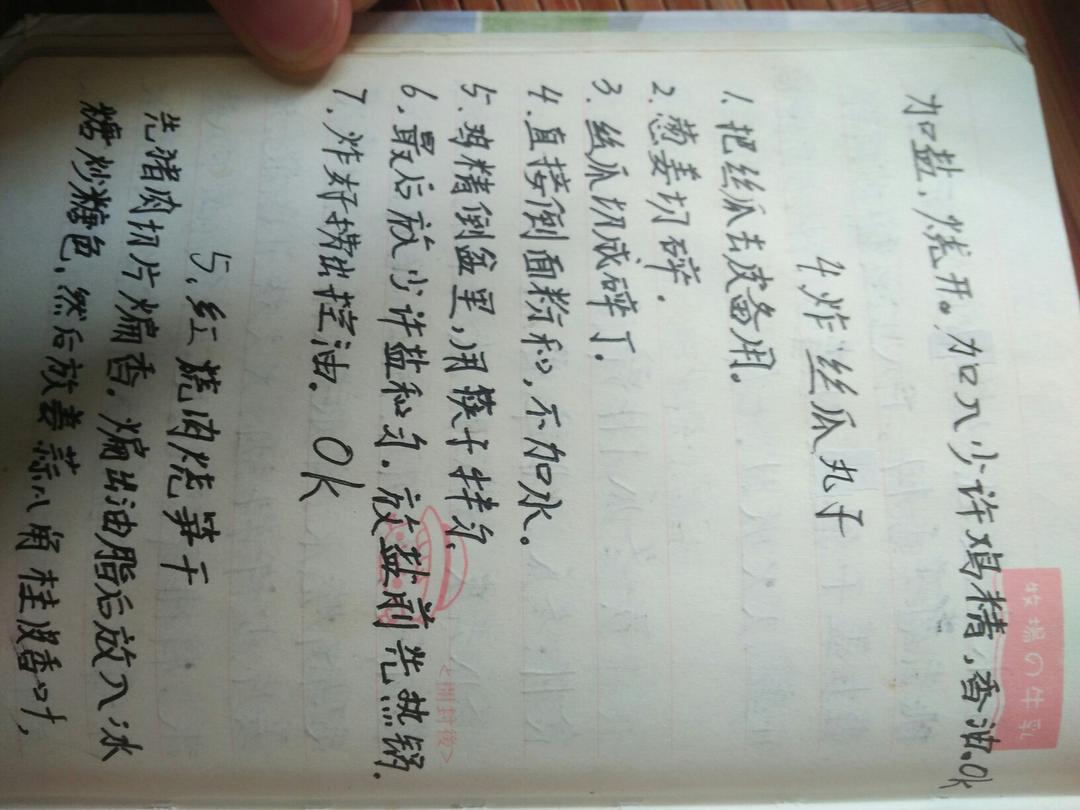 牧場の牛乳
加盐，烧开。加入少许鸡精，香油。Ok
4炸丝瓜丸子
1.把丝瓜去皮备用。
2.葱姜切碎.
3.丝瓜切成碎丁.
4.直接倒面粉和，不加水。
5.鸡精倒盆里，用筷子拌匀.
6.最后放少许盐和匀.放盐前先热锅.
7.炸好捞出控油。Ok
<開封後>
5.红烧肉烧笋干
先猪肉切片煸香.煸出油脂后放入冰
糖炒糖色，然后放姜蒜八角桂皮香叶，